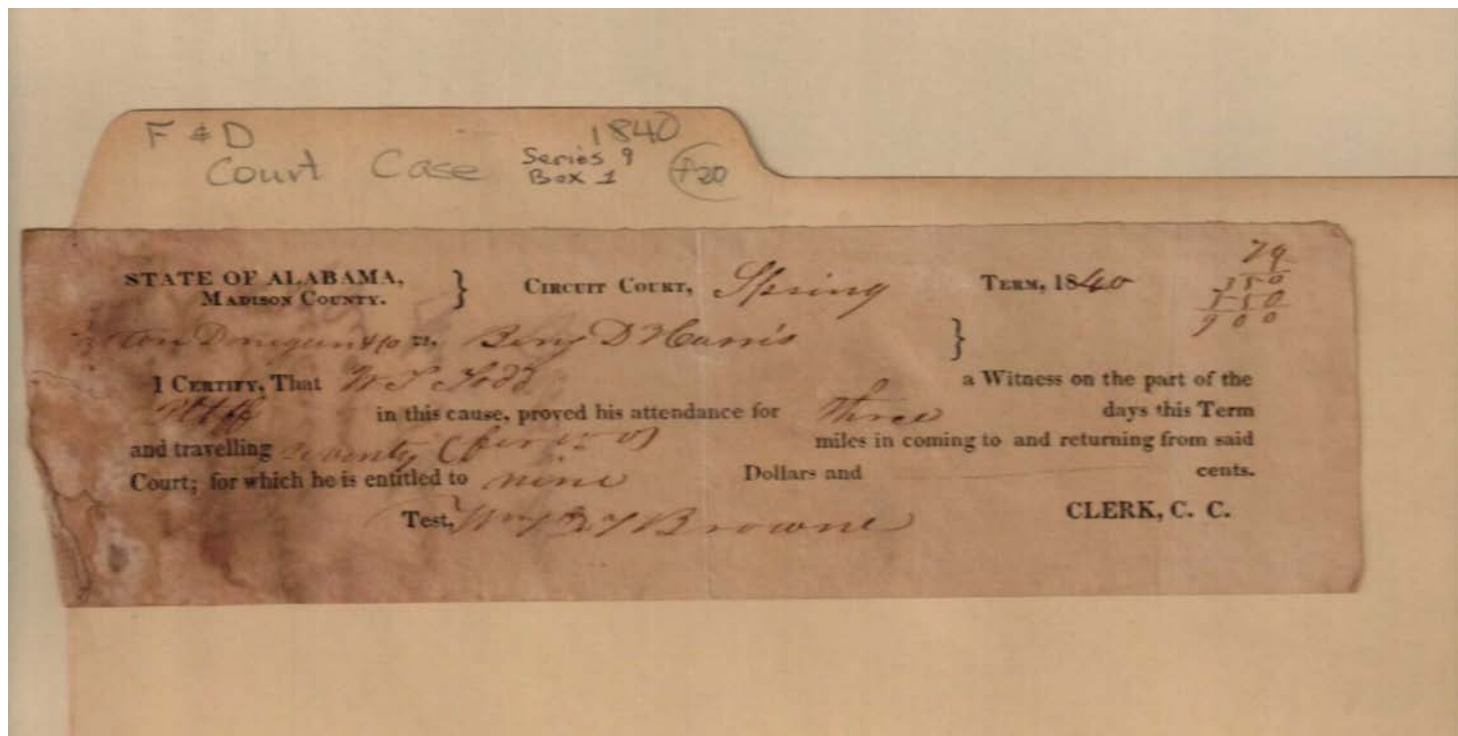 F & D 1840
Court Case Series 9
Box 1 f20
STATE OF ALABAMA, } CIRCUIT COURT, Spring TERM, 1840
MADISON COUNTY.
Donegan & Co vs. Benj D Harris }
I CERTIFY, That W T Todd a Witness on the part of the
Pltff in this cause, proved his attendance for three days this Term
and travelling seventy miles in coming to and returning from said
Court; for which he is entitled to nine Dollars and cents.
Test, Browne CLERK, C. C.